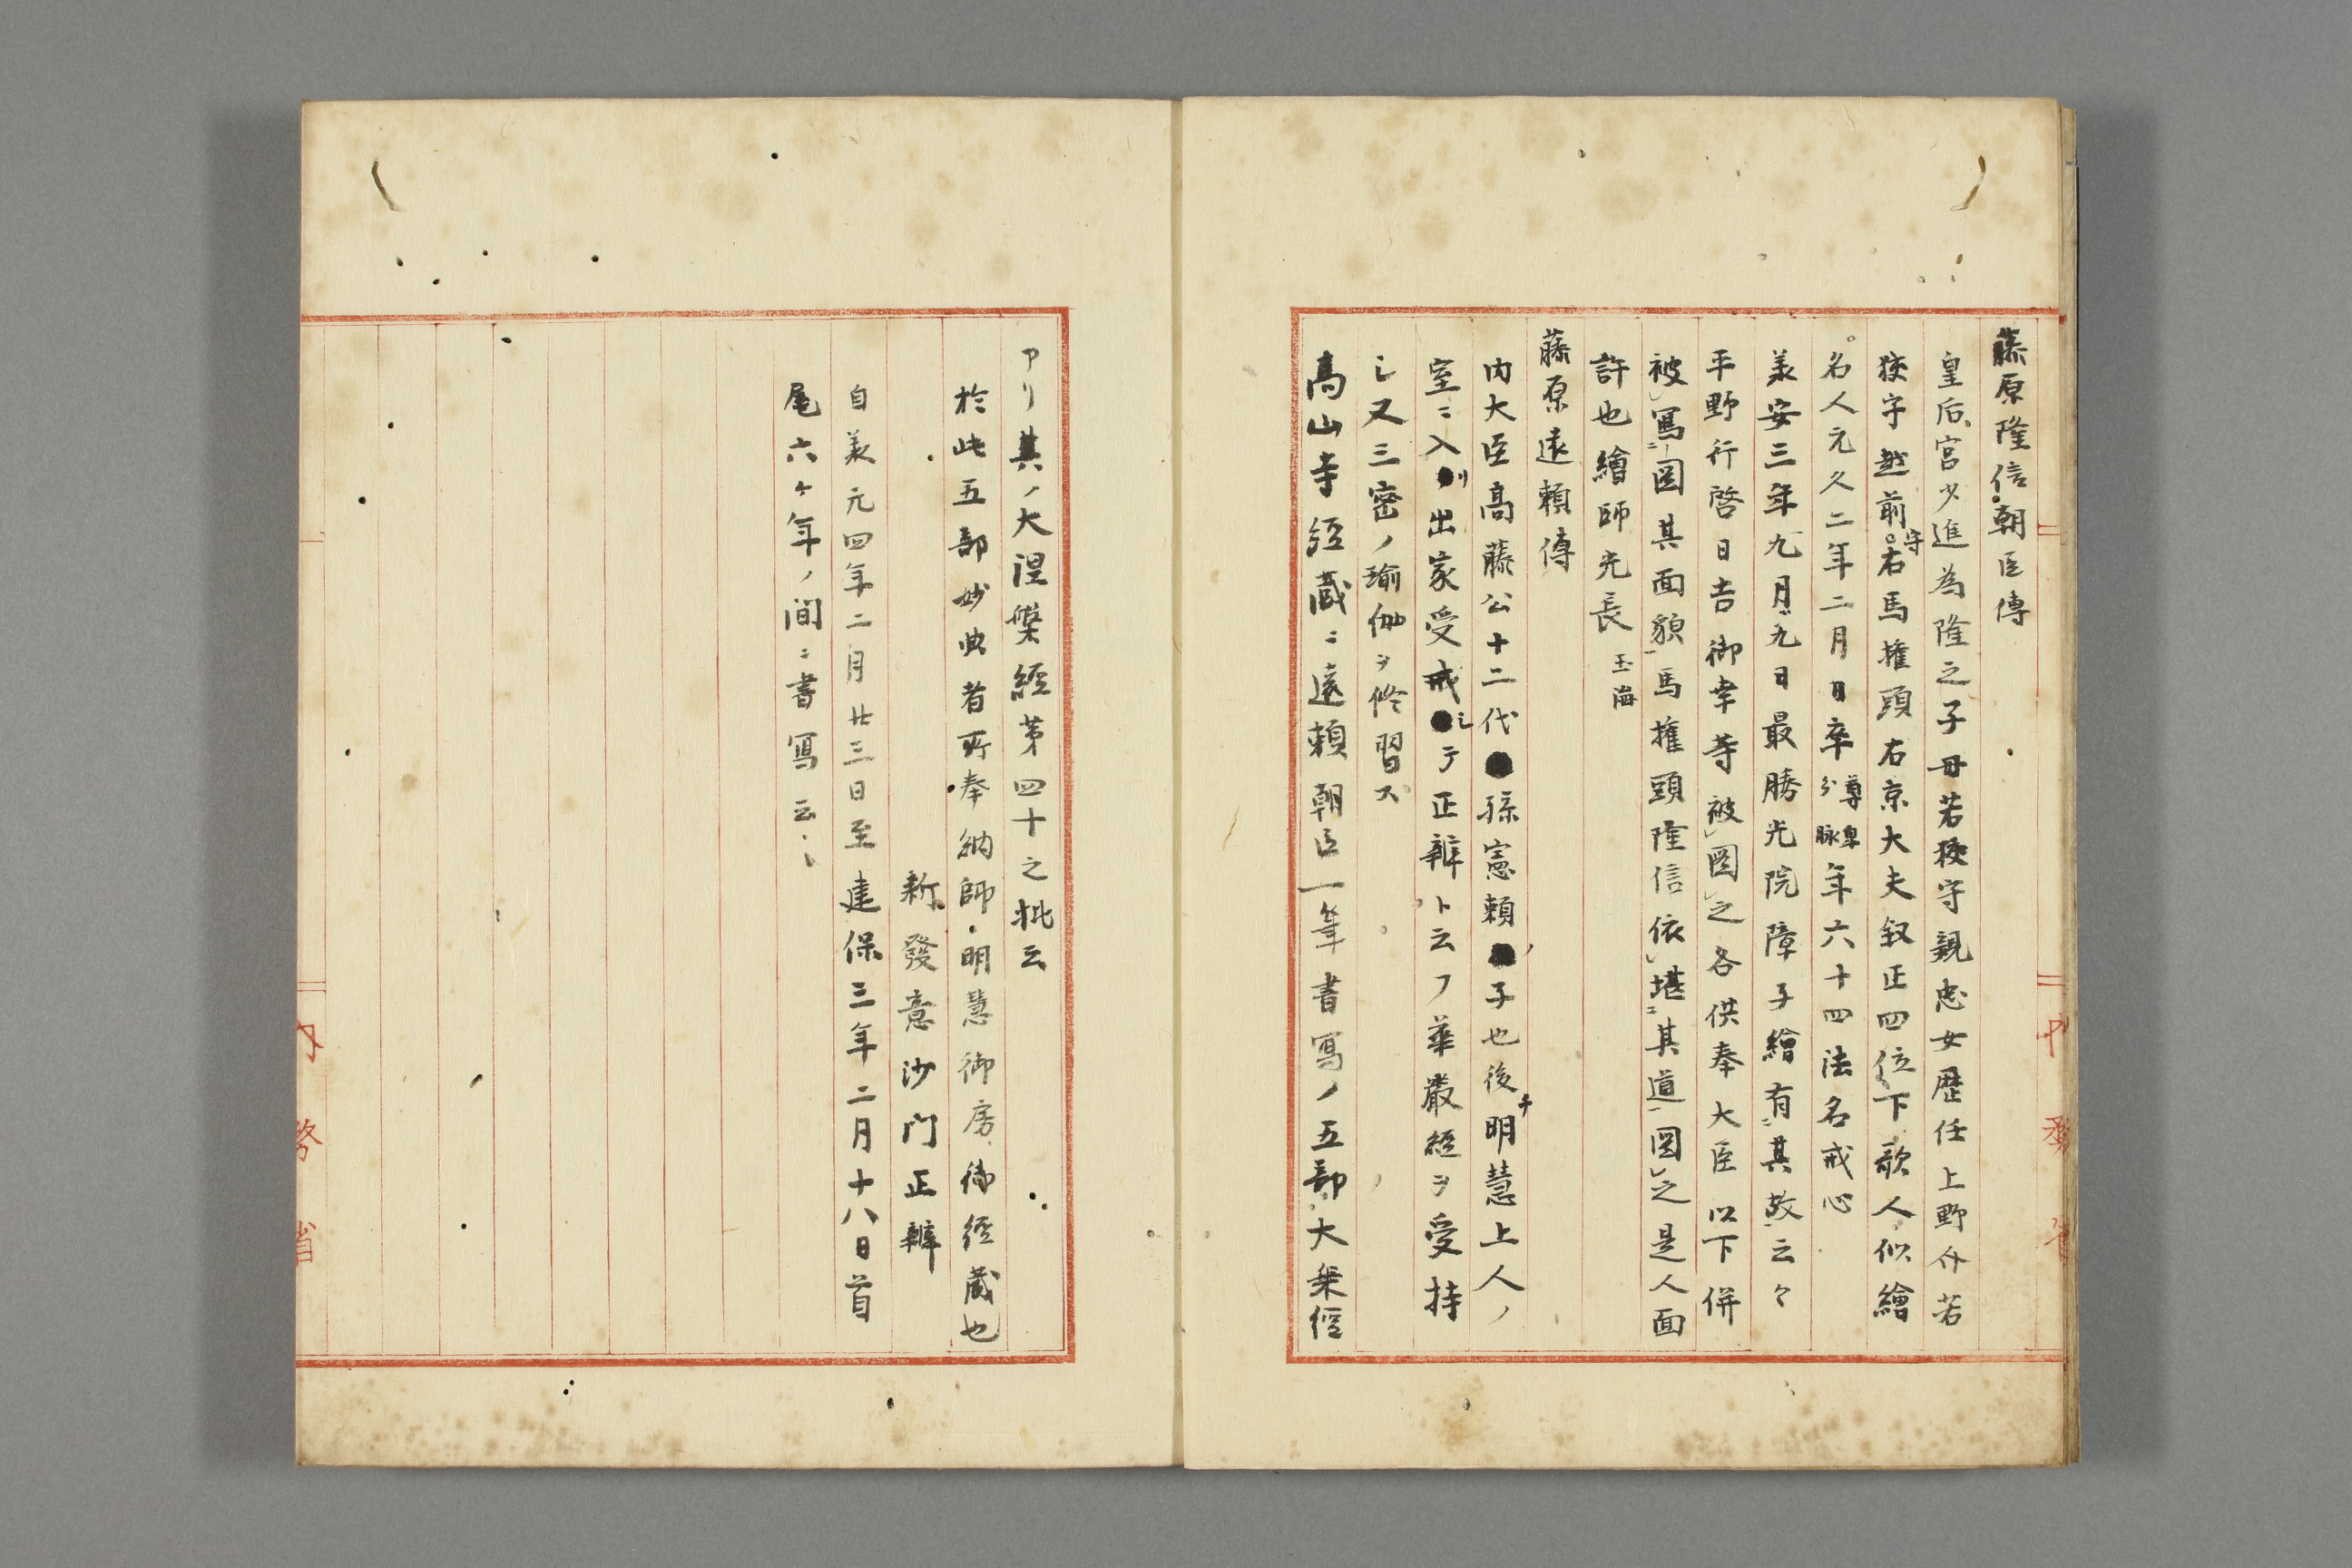 藤原隆信朝臣傳
皇后宮少進為隆之子母若狹守親忠女歴任上野介若
狹守越前守右馬権頭右京大夫叙正四位下歌人似繪
名人元久二年二月日卒尊卑分脉年六十四法名戒心
羙安三年九月九日最勝光院障子繪有其故云々
平野行啓日吉御幸等被図之各供奉大臣以下併
被寫ニ図其面貌馬権頭隆信依堪ニ其道図之是人面
許也繪師光長玉海
藤原遠頼傳
内大臣高藤公十二代孫憲頼ノ子也後チ明慧上人ノ
室ニ入リ出家受戒シテ正辨ト云フ華嚴經ヲ受持
シ又三密ノ瑜伽ヲ修習ス
高山寺經蔵ニ遠頼朝臣一筆書寫ノ五部大乗經
アリ其ノ大涅槃經第四十之批云
於此五部妙典者所奉納師明慧御房御經蔵也
新發意沙门正辨
自羙元四年二月廿三日至建保三年二月十八日首
尾六ヶ年ノ间ニ書寫云〻
内務省
内務省